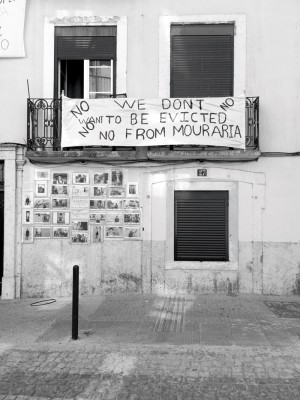 NO WE DONT NO
NO WANT TO BE EVICTED
NO FROM MOURARIA
27